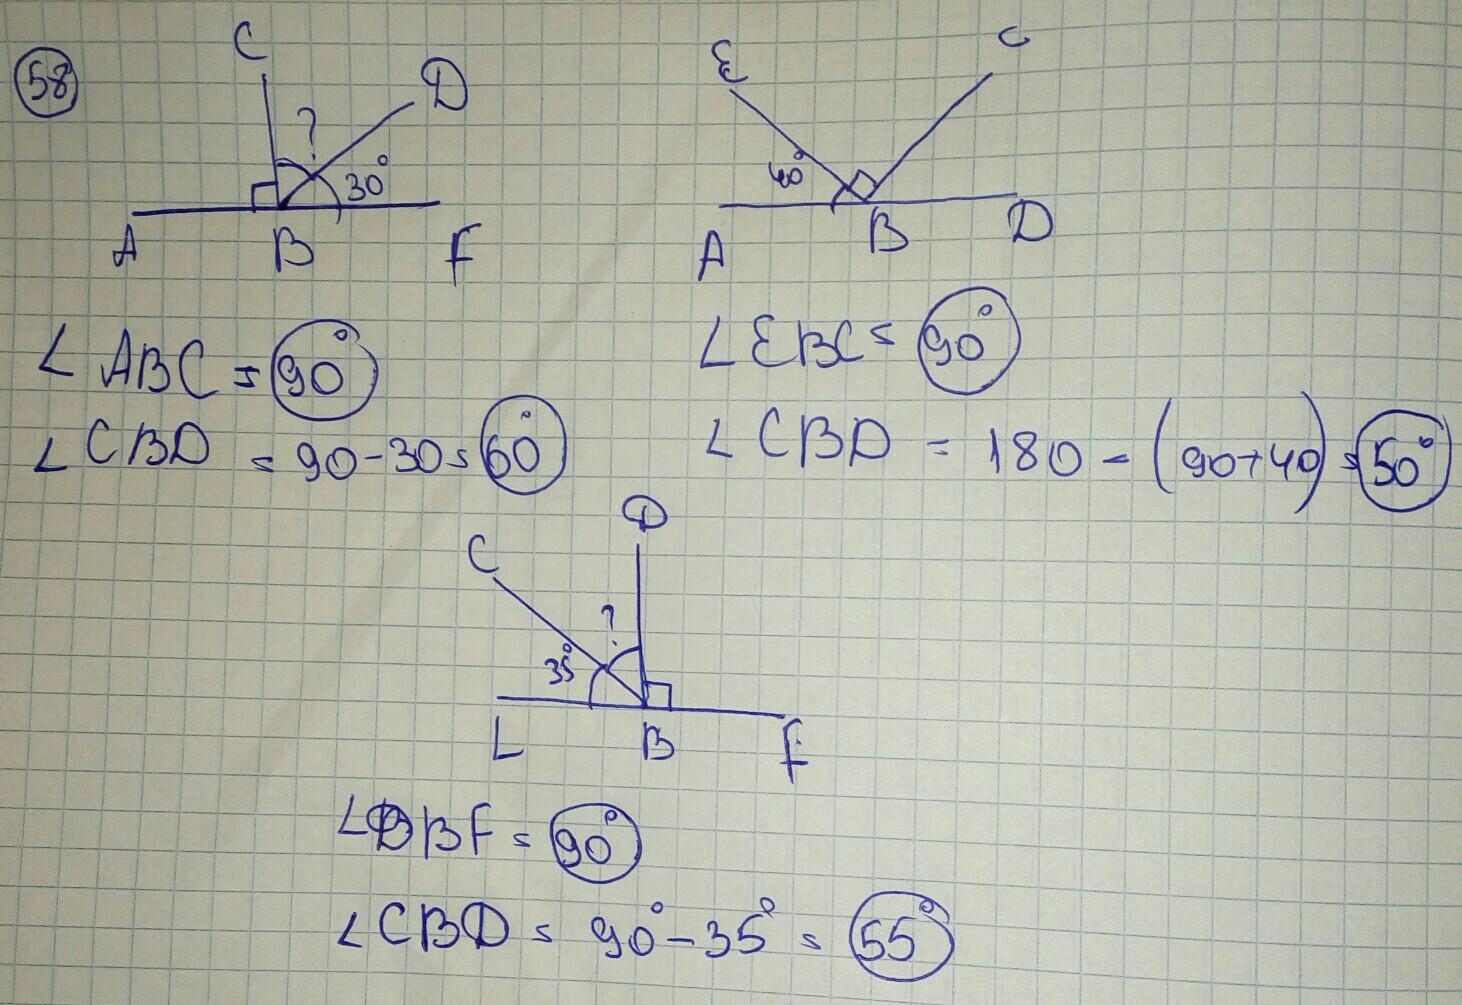 58
C
D
?
30°
A B F
∠ ABC = 90°
∠ CBD = 90-30=60°
E
C
40°
A B D
∠ EBC = 90°
∠ CBD = 180 - (90+40) = 50°
C
D
?
35°
L B F
∠DBF = 90°
∠CBD = 90°-35° = 55°